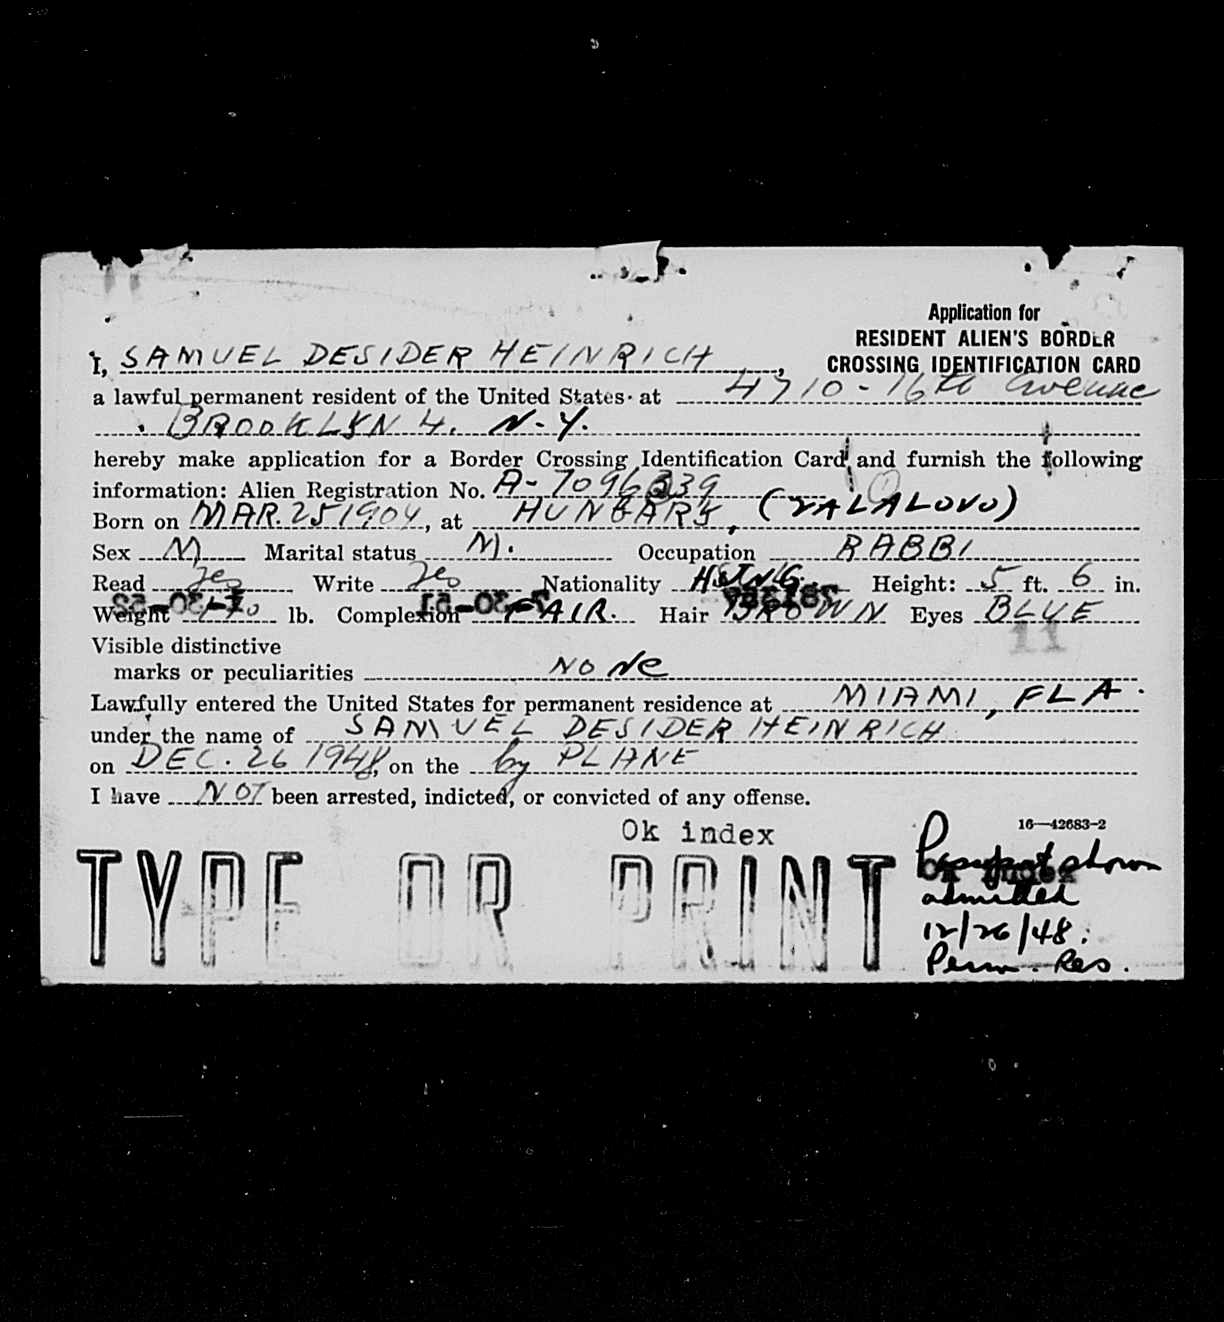 Application for
RESIDENT ALIEN'S BORDER
CROSSING IDENTIFICATION CARD
I, SAMUEL DESIDER HEINRICH,
a lawful permanent resident of the United States at 4710-16th Avenue
BROOKLYN 4. N.Y.
hereby make application for a Border Crossing Identification Card and furnish the following
information: Alien Registration No. A-7096339
Born on MAR. 25 1904, at HUNGARY, (YALALOVO)
Sex M Marital status M. Occupation RABBI
Read yes Write yes Nationality HUNG. Height: 5 ft. 6 in.
Weight lb. Complexion FAIR. Hair BROWN Eyes BLUE
11
Visible distinctive
marks or peculiarities NONE
Lawfully entered the United States for permanent residence at MIAMI, FLA.
under the name of SAMUEL DESIDER HEINRICH
on DEC. 26 1948, on the by PLANE
I have NOT been arrested, indicted, or convicted of any offense.
16—42683-2
Ok index
TYPE OR PRINT
Passport shown
admitted
12/26/48.
Perm. Res.